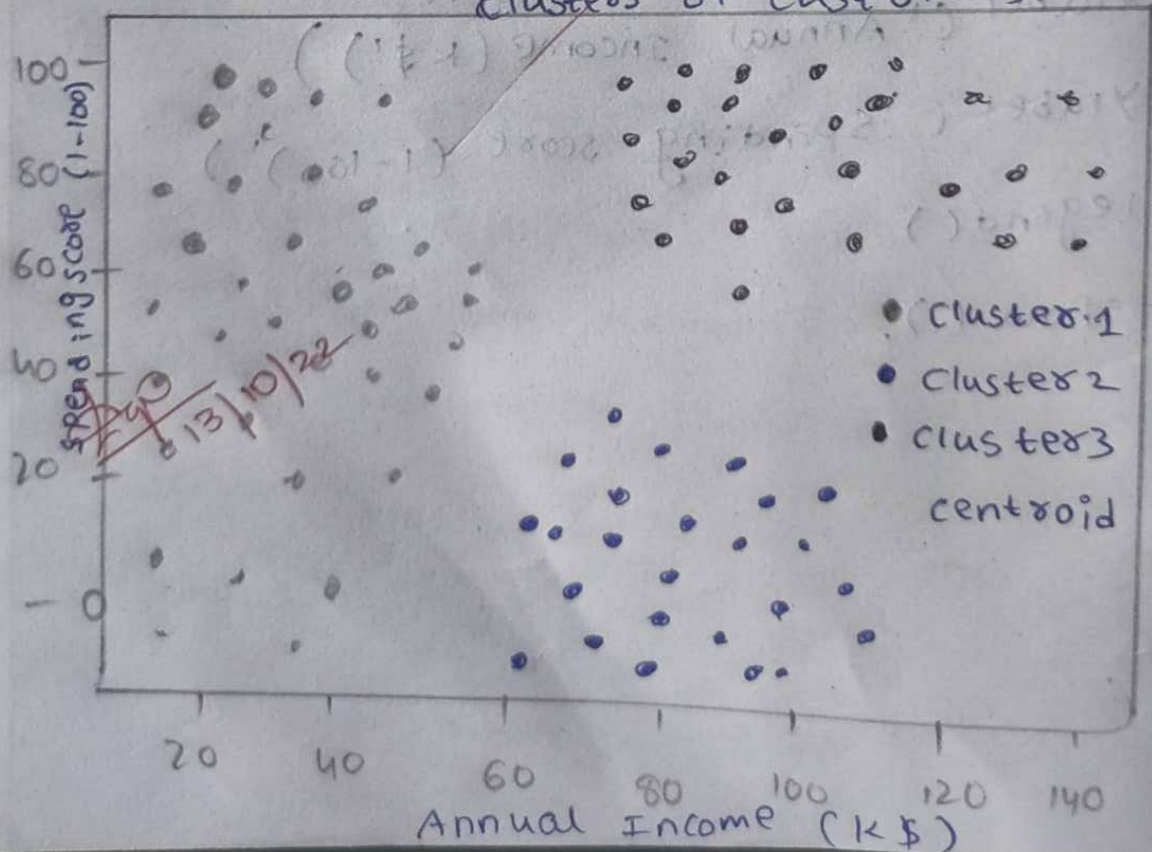 clusters of
100
80
60
40
20
- 0
spending score (1-100)
13/10/22
cluster.1
cluster 2
cluster3
centroid
20 40 60 80 100 120 140
Annual Income (K$)